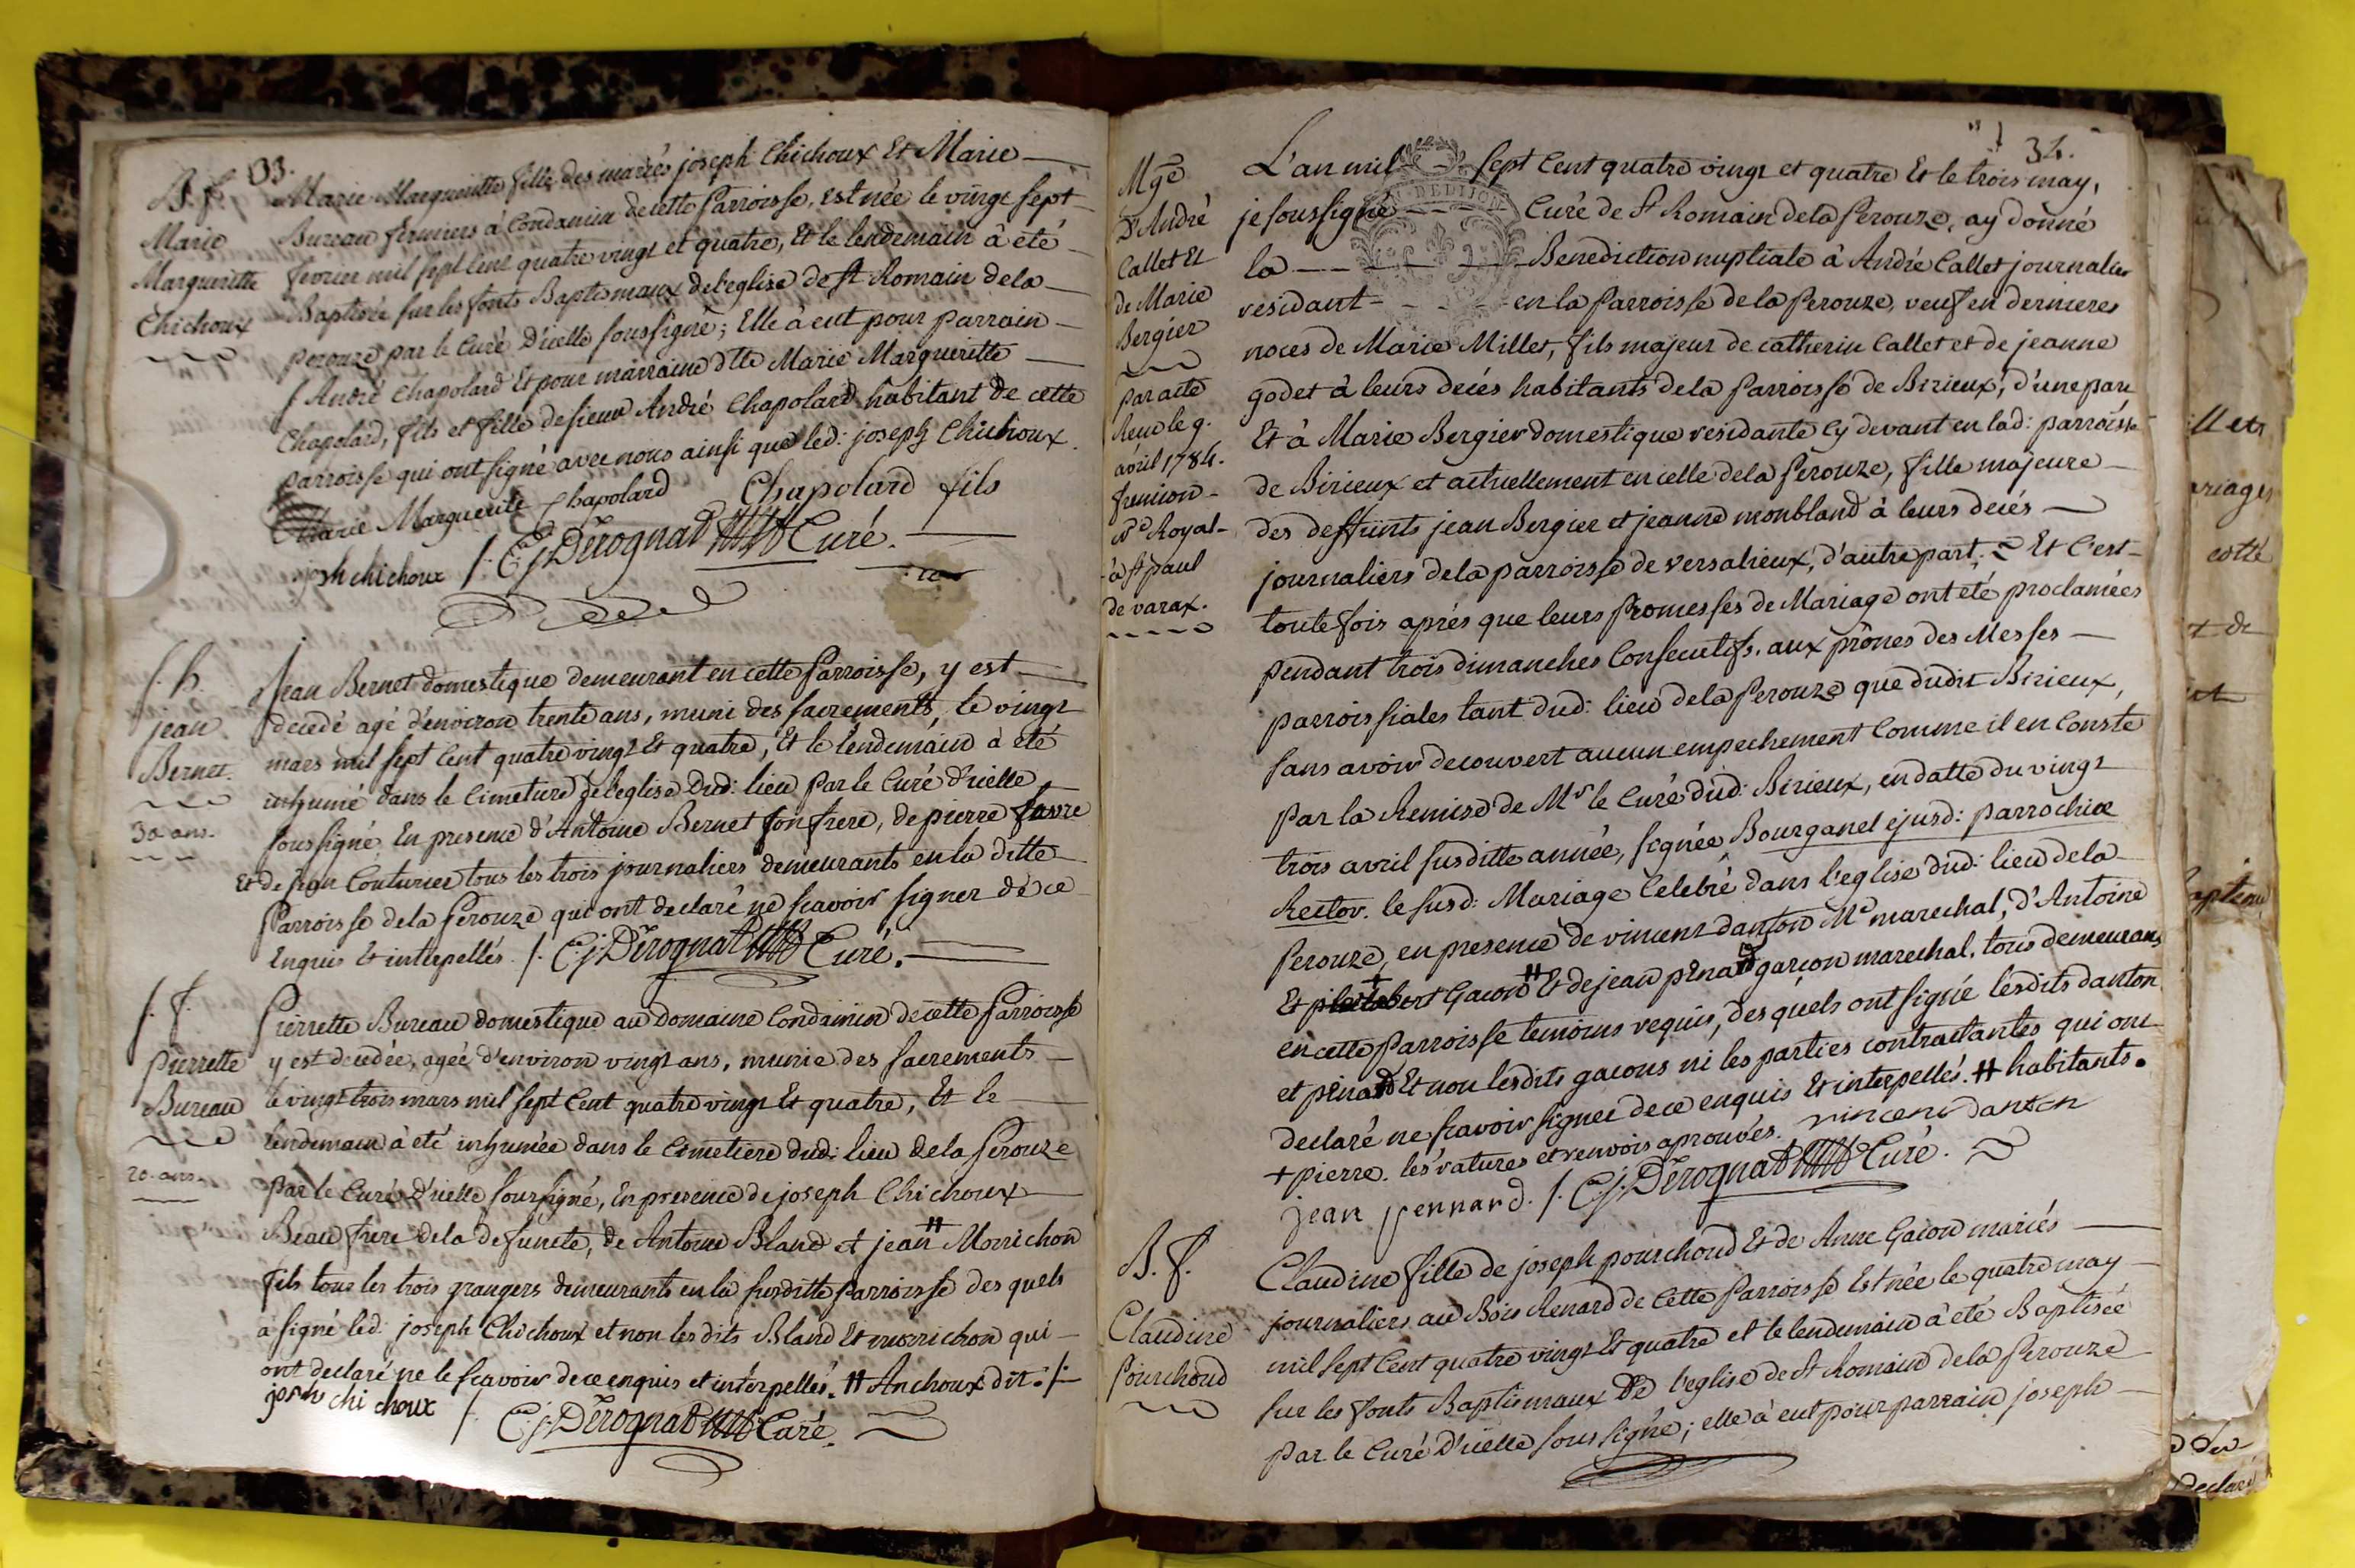 33.
B. f.
Marie
Margueritte
Chichoux
Marie Margueritte fille des mariés joseph Chichoux Et Marie
Bureau fermiers à Condamin de cette Parroisse, est née le vingt sept
fevrier mil sept Cent quatre vingt et quatre, Et le lendemain à été
Baptisée sur les fonts Baptismaux de l'eglise de St Romain de la
perouze par le Curé D'icelle soussigné; Elle à eut pour parrain
André Chapolard Et pour marraine dlle Marie Margueritte
Chapolard, fils et fille de sieur André Chapolard habitant de cette
parroisse qui ont signé avec nous ainsi que led: joseph Chichoux.
Marie Marguerite Chapolard Chapolard fils
josh chichoux /. C. j. Dérognat Curé.
S. h.
jean
Bernet.
30 ans.
Jean Bernet domestique demeurant en cette Parroisse, y est
decedé agé d'environ trente ans, muni des sacrements, le vingt
mars mil sept Cent quatre vingt Et quatre, Et le lendemain à été
inhumé dans le Cimetiere de l'eglise dud: lieu par le Curé d'icelle
soussigné En presence d'Antoine Bernet son frere, de pierre favre
Et de jean Couturier tous les trois journaliers demeurants en la ditte
Parroisse de la Perouze qui ont declaré ne scavoir signer de ce
Enquis Et intrepellés. /. C. j. Dérognat Curé.
S. f.
Pierrette
Bureau
20 ans.
Pierrette Bureau domestique au domaine Condamin de cette Parroisse
y est decedée, agée d'environ vingt ans, munie des sacrements
le vingt trois mars mil sept Cent quatre vingt Et quatre, Et le
lendemain à été inhumée dans le Cimetiere dud: lieu de la Perouze
par le Curé D'icelle soussigné, En presence de joseph Chichoux
Beau frere de la defuncte, de Antoine Bland et jean # Morrichon
fils tous les trois grangers demeurants en la susditte Parroisse des quels
a signé led: joseph Chichoux et non les dits Bland Et morrichon qui
ont declaré ne le scavoir de ce enquis et interpellés. # Anchoux dit. /.
joseph chi choux /. C. j. Dérognat Curé.
34.
Mge
D'André
Callet Et
de Marie
Bergier
par acte
Reçu le 9.
avril 1784.
fremion
Nre Royal
à St paul
de varax.
L'an mil sept Cent quatre vingt et quatre Et le trois may,
je soussigné Curé de St Romain de la Perouze, ay donné
la Benediction nuptiale à André Callet journalier
residant en la Parroisse de la Perouze, veuf en dernieres
noces de Marie Millet, fils majeur de catherin Callet et de jeanne
godet à leurs decés habitants de la Parroisse de Birieux, d'une part
Et à Marie Bergier domestique residante Cy devant en lad: parroisse
de Birieux et actuellement en celle de la Perouze, fille majeure
des deffunts jean Bergier et jeanne monbland à leurs decés
journaliers de la parroisse de versalieux, d'autre part. Et C'est
toute fois aprés que leurs Promesses de Mariage ont été proclamées
pendant trois dimanches Consecutifs, aux prônes des Messes
parroissiales tant dud: lieu de la Perouze que dudit Birieux,
sans avoir decouvert aucun empechement Comme il en Conste
par la Remise de Mr le Curé dud: Birieux, en datte du vingt
trois avril susditte année, signée Bourganel ejusd: parrochiæ
Rector. le susd: Mariage Celebré dans l'eglise dud: lieu de la
Perouze, en presence de vincent danton Me marechal, d'Antoine
Et + Gacon # Et de jean penard garcon marechal, tous demeurans
en cette Parroisse temoins requis, des quels ont signé lesdits danton
et penard Et non lesdits gacons ni les parties contractantes qui ont
declaré ne scavoir signer de ce enquis Et interpellés. # habitants.
+ pierre. les ratures et renvois aprouvés. vincent danton
jean pennard. /. C. j. Dérognat Curé.
B. f.
Claudine
Pourchoud
Claudine fille de joseph pourchoud Et de Anne Gacon mariés
journaliers au Bois Renard de Cette Parroisse Est née le quatre may
mil sept Cent quatre vingt Et quatre et le lendemain à été Baptisée
sur les fonts Baptismaux De l'eglise de St Romain de la Perouze
par le Curé D'icelle soussigné; elle à eut pour parrain joseph